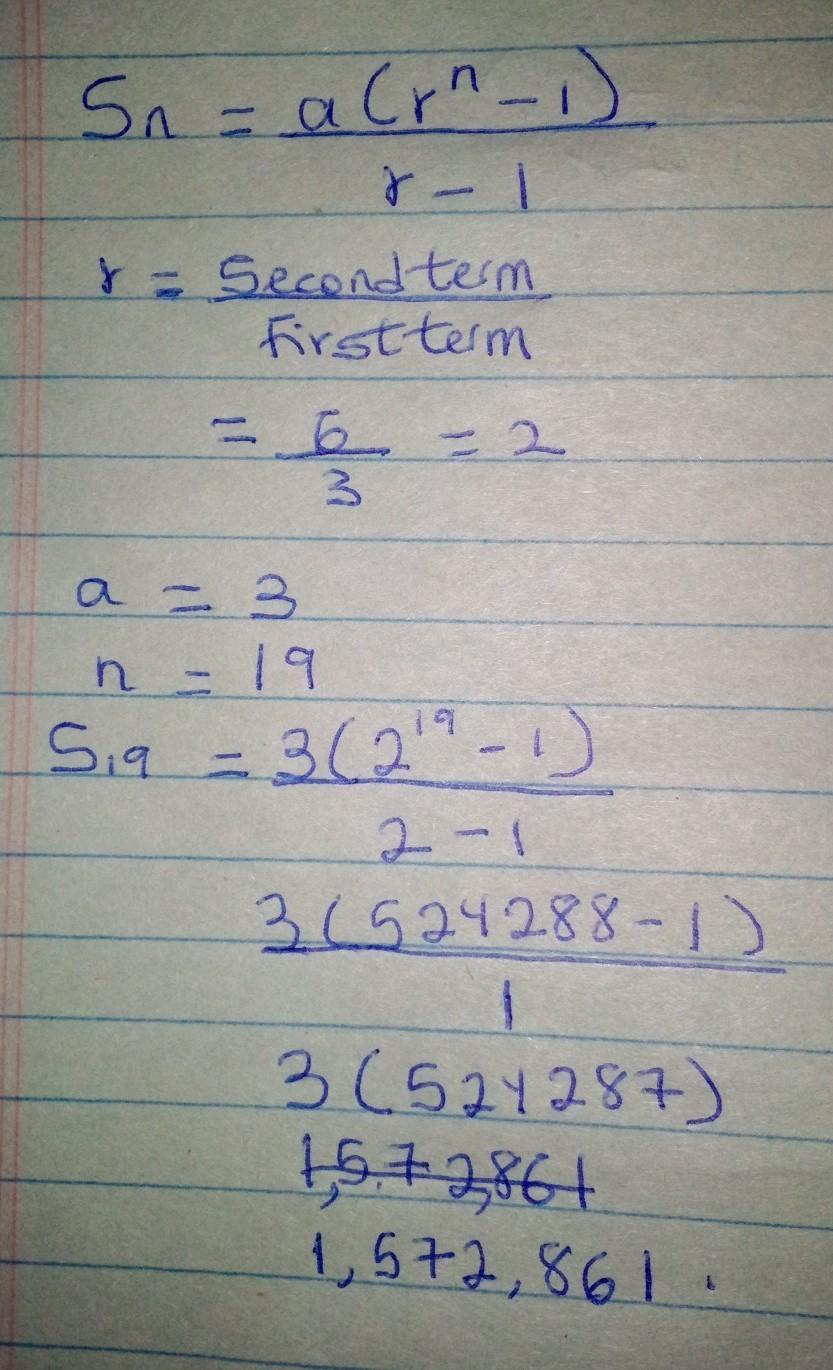 Sn = a(r^n - 1)
r - 1
r = Second term
First term
= 6 = 2
3
a = 3
n = 19
S19 = 3(2^19 - 1)
2 - 1
3(524288 - 1)
1
3(524287)
1,572,861
1,572,861.